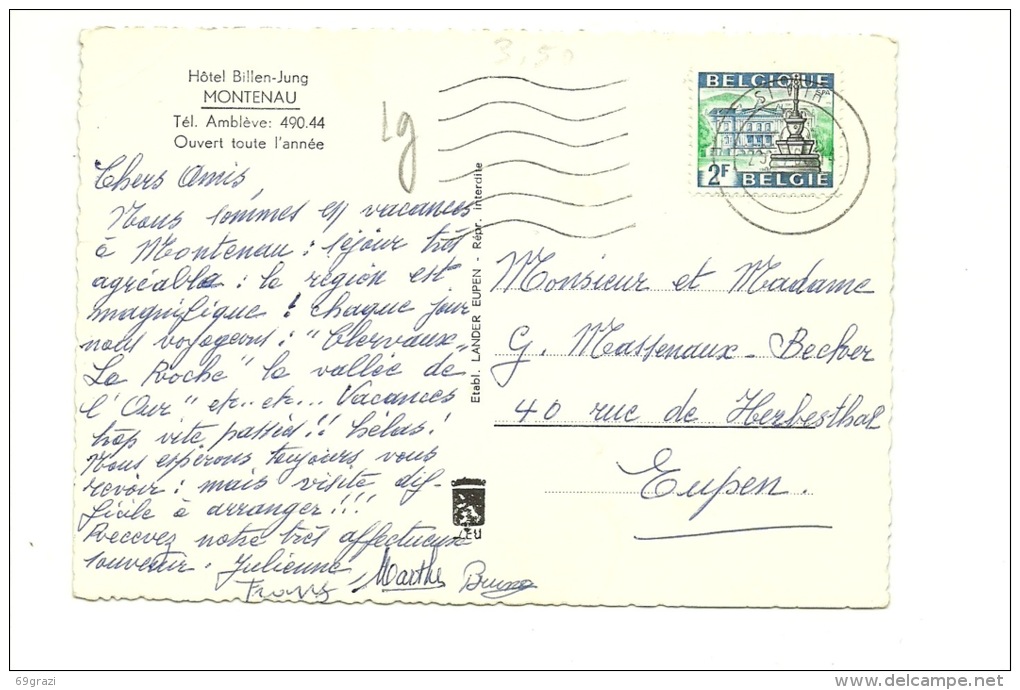 3,50
Hôtel Billen-Jung
MONTENAU
Tél. Amblève: 490.44
Ouvert toute l'année
Lg
BELGIQUE
2F BELGIE
ST VITH
Chers Amis,
Nous sommes en vacances
à Montenau : séjour très
agréable : la région est
magnifique : chaque jour
nous voyageons : "Clervaux"
La Roche" la vallée de
l'Our" etc.. etc... Vacances
trop vite passées!! hélas!
Nous espérons toujours vous
revoir : mais visite dif-
ficile à arranger!!!
Recevez notre très affectueux
souvenir. Julienne,
Frans Marthe Bruno
Etabl. LANDER EUPEN - Répr. interdite
LEU
Monsieur et Madame
G. Massenaux-Becker
40 rue de Herbesthal
Eupen.
69grazi
www.delcampe.net